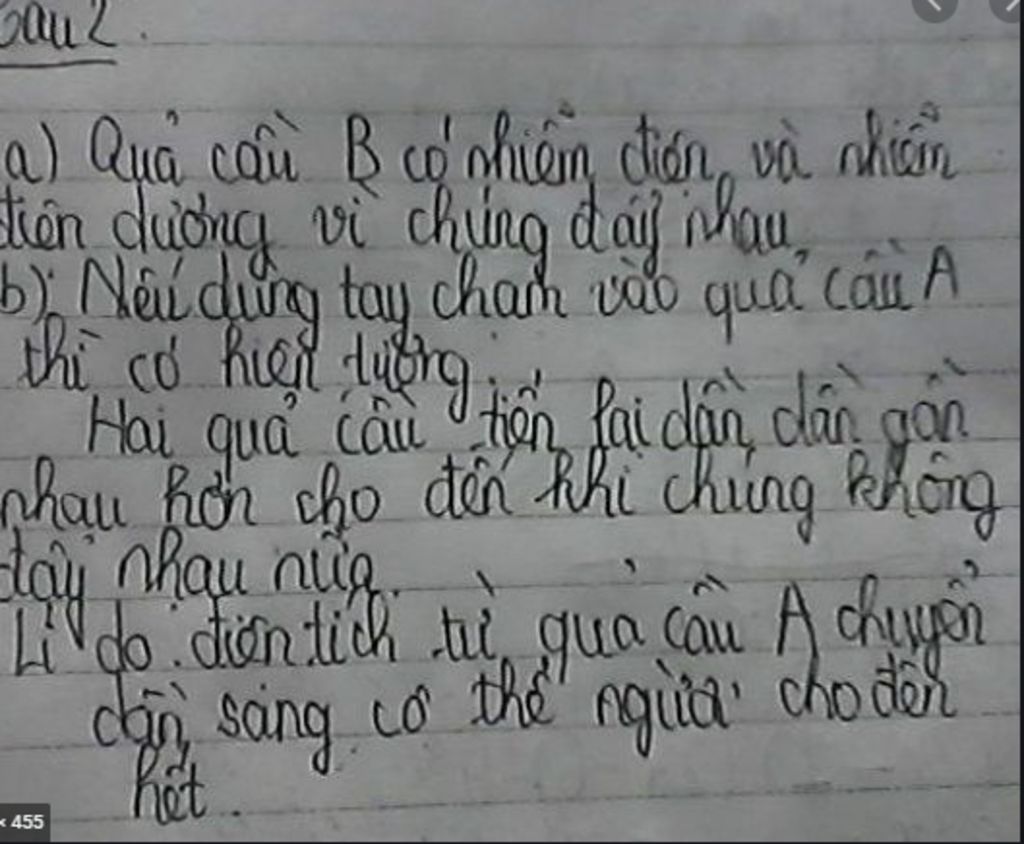 Câu 2.
a) Quả cầu B có nhiễm điện, và nhiễm
điện dương vì chúng đẩy nhau.
b) Nếu dùng tay chạm vào quả cầu A
thì có hiện tượng:
Hai quả cầu tiến lại dần dần gần
nhau hơn cho đến khi chúng không
đẩy nhau nữa.
Lí do: điện tích từ quả cầu A chuyển
dần sang cơ thể người cho đến
hết.
× 455